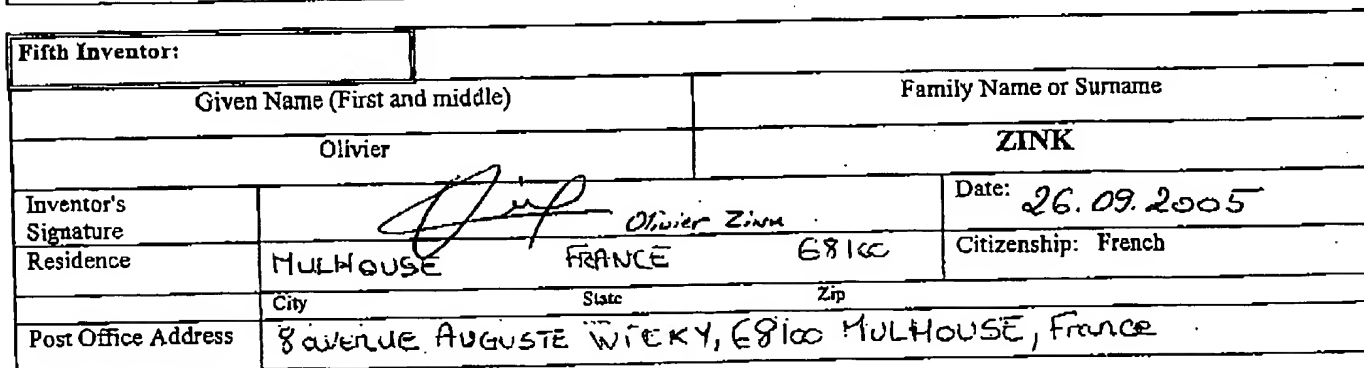 Fifth Inventor:
Given Name (First and middle) Family Name or Surname
Olivier ZINK
Inventor's Signature Olivier Zink Date: 26.09.2005
Residence MULHOUSE FRANCE 68100 Citizenship: French
City State Zip
Post Office Address 8 avenue AUGUSTE WICKY, 68100 MULHOUSE, France